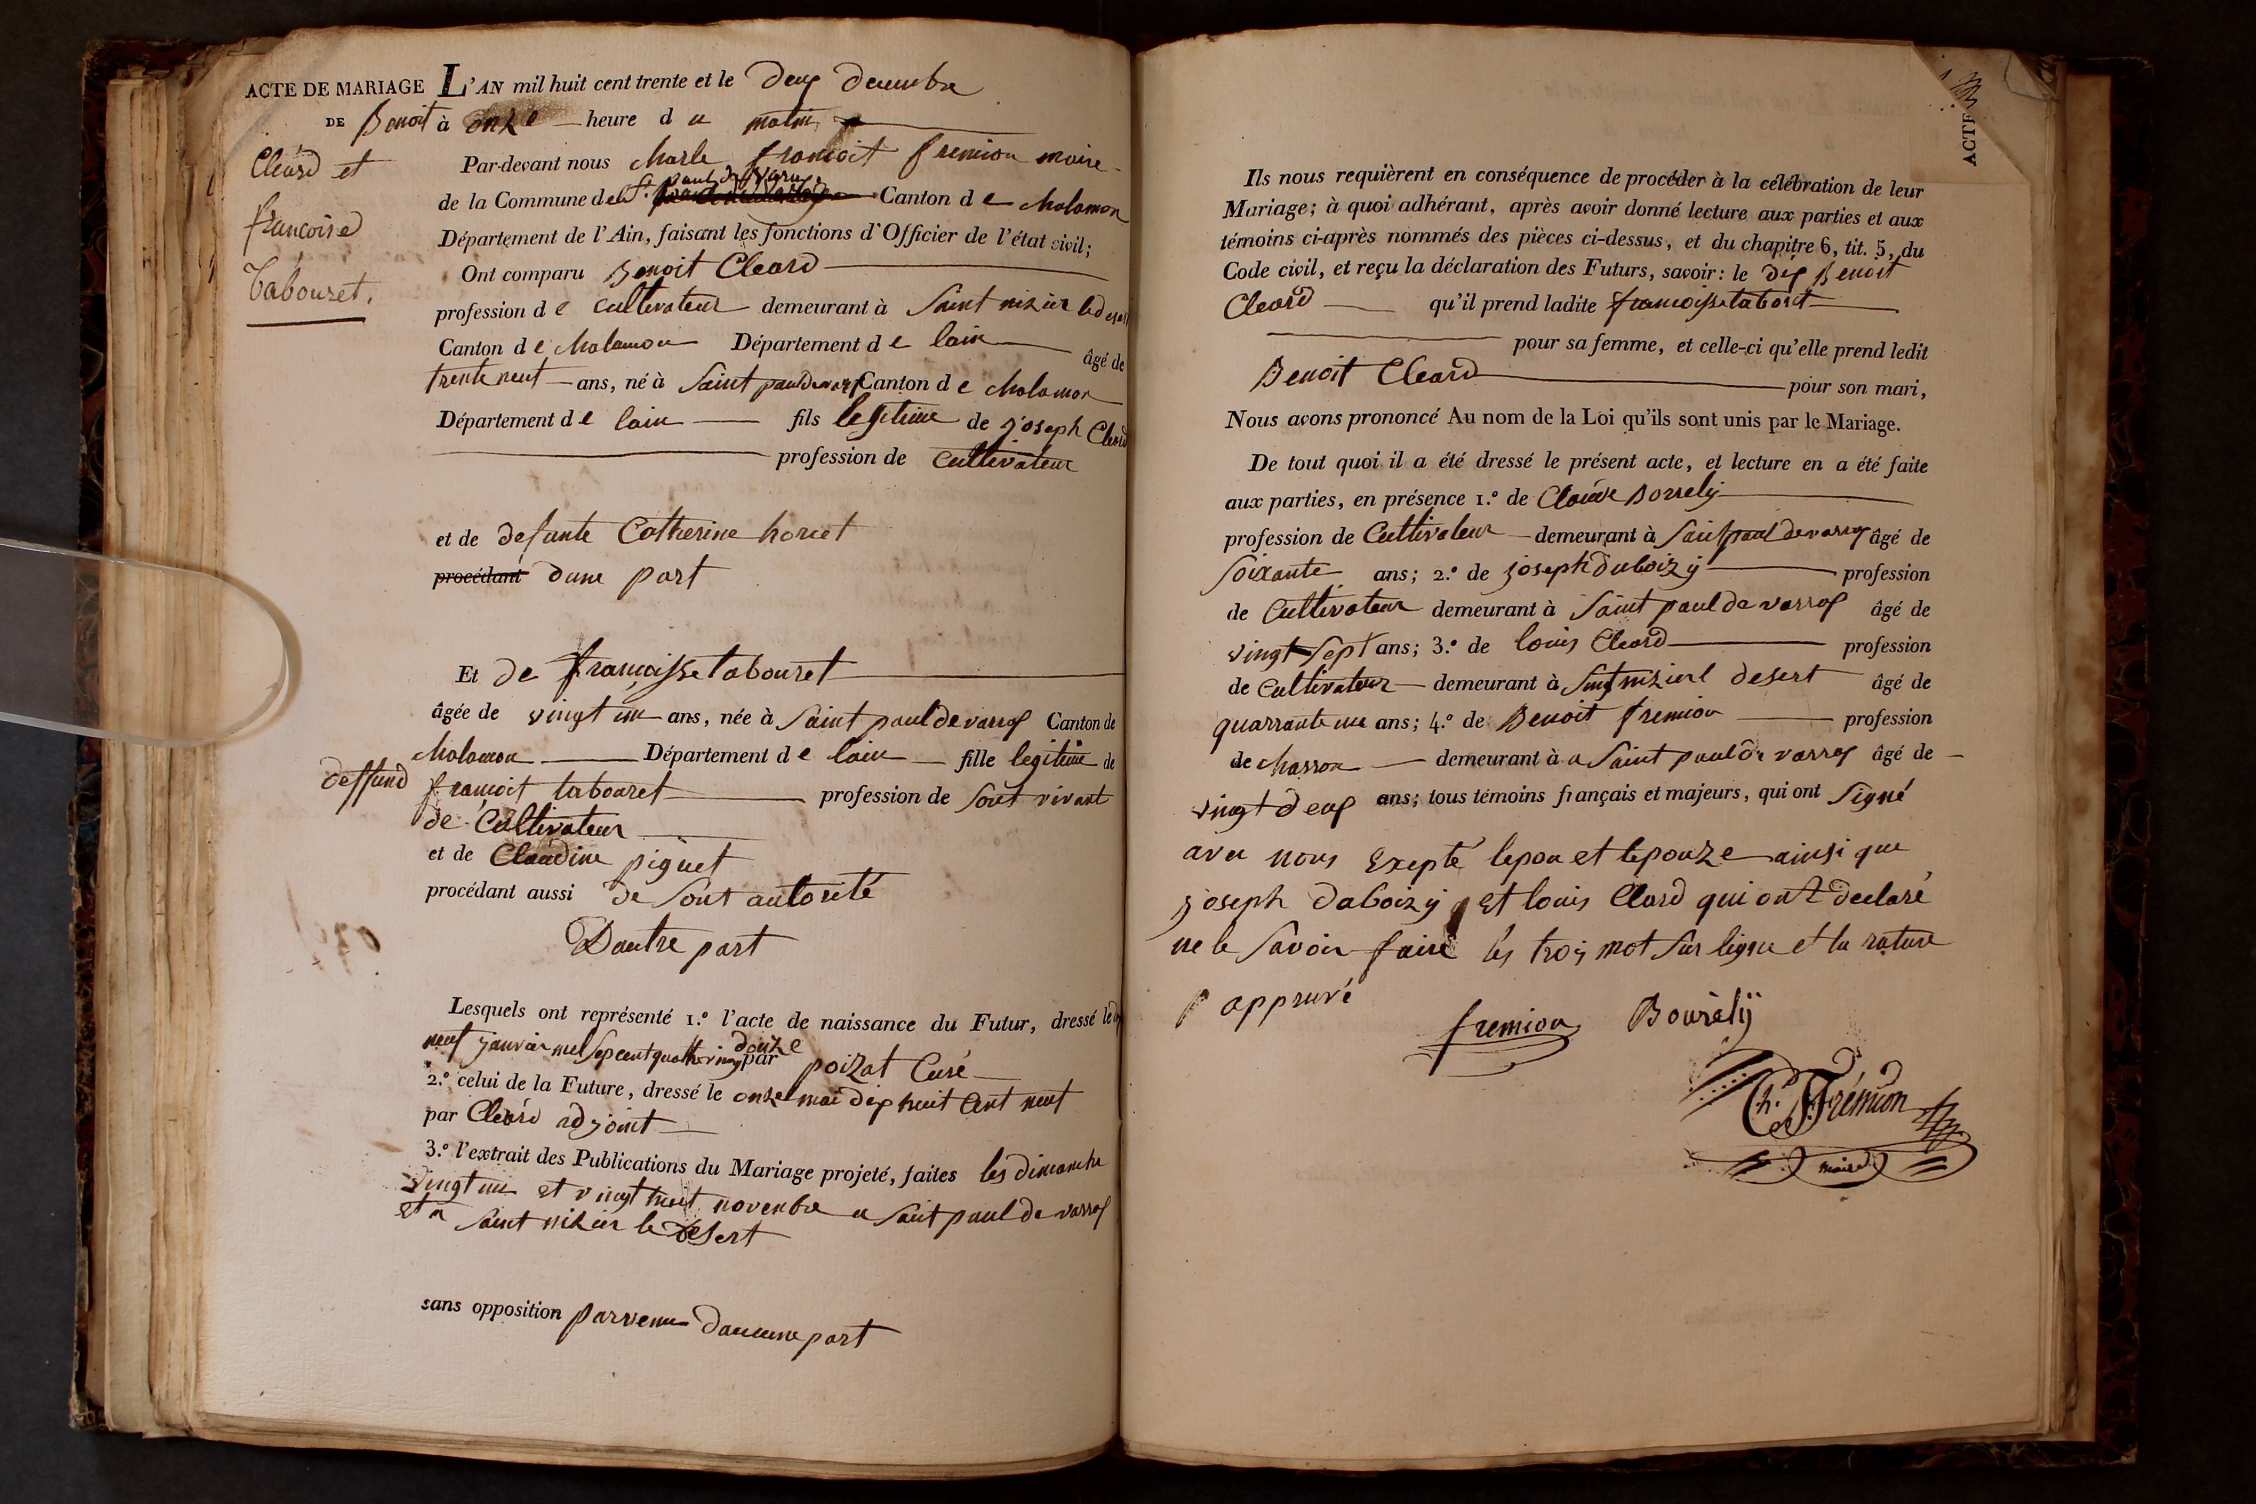 ACTE DE MARIAGE L'AN mil huit cent trente et le deux decembre
DE Benoit à onze heure d u matin
Cleard et
francoise
Tabouret.
Par-devant nous charle francoit fremion maire
de la Commune de St. paul de varax Canton d e chalamon
Département de l'Ain, faisant les fonctions d'Officier de l'état civil;
Ont comparu Benoit Cleard
profession d e cultivateur demeurant à Saint nizier le desert
Canton d e chalamon Département d e lain âgé de
trente neuf ans, né à Saint paul de varax Canton d e chalamon
Département d e lain fils legitime de joseph Cleard
profession de cultivateur
et de defunte Catherine horiet
procédant dune part
Et de francoisse tabouret
âgée de vingt un ans, née à Saint paul de varras Canton de
chalamon Département d e lain fille legitime de
deffund francoit tabouret profession de sont vivant
de cultivateur
et de Claudine piquet
procédant aussi de sont autorité
Dautre part
Lesquels ont représenté 1.º l'acte de naissance du Futur, dressé le dix
neuf janvier mil sept cent quatre vingt douze par poizat Curé
2.º celui de la Future, dressé le onze mai dix huit cent neuf
par Cleard adjoint
3.º l'extrait des Publications du Mariage projeté, faites les dimanche
vingt un et vingt huit novembre a saint paul de varras
et a saint nizier le desert
sans opposition parvenu daucune part
ACTE
Ils nous requièrent en conséquence de procéder à la célébration de leur
Mariage; à quoi adhérant, après avoir donné lecture aux parties et aux
témoins ci-après nommés des pièces ci-dessus, et du chapitre 6, tit. 5, du
Code civil, et reçu la déclaration des Futurs, savoir: le dit Benoit
Cleard qu'il prend ladite francoisse taboret
pour sa femme, et celle-ci qu'elle prend ledit
Benoit Cleard pour son mari,
Nous avons prononcé Au nom de la Loi qu'ils sont unis par le Mariage.
De tout quoi il a été dressé le présent acte, et lecture en a été faite
aux parties, en présence 1.º de Claude Borrely
profession de Cultivateur demeurant à Saint paul de varras âgé de
soixante ans; 2.º de joseph duboizy profession
de Cultivateur demeurant à Saint paul de varras âgé de
vingt sept ans; 3.º de louis Cleard profession
de Cultivateur demeurant à Saint nizier l desert âgé de
quarrante un ans; 4.º de Benoit fremion profession
de charron demeurant à a Saint paul de varras âgé de
vingt deux ans; tous témoins français et majeurs, qui ont signé
avec nous Exepté lepou et lepouze ainsi que
joseph daboizy et louis Clard qui ont declaré
ne le savoir faire les trois mot sur ligne et la rature
appruvé
fremion Bourély
Ch. Frémion
maire